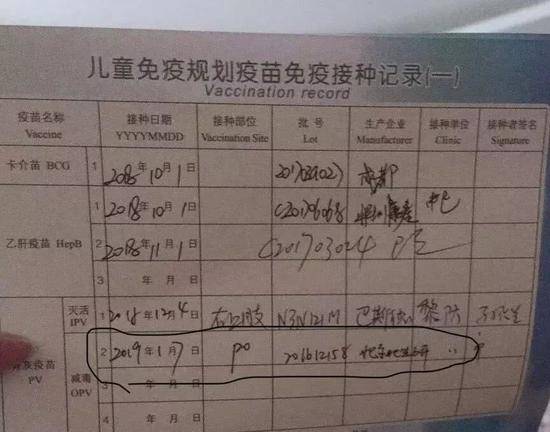 儿童免疫规划疫苗免疫接种记录(一)
Vaccination record
疫苗名称 接种日期 接种部位 批号 生产企业 接种单位 接种者签名
Vaccine YYYYMMDD Vaccination Site Lot Manufacturer Clinic Signature
卡介苗 BCG 1 2018年10月1日 成都
乙肝疫苗 HepB 1 2018年10月1日
2 2018年11月1日 C201703024
3 年 月 日
灰疫苗 PV
灭活 IPV 1 2018年12月4日 N3N121M 巴斯德
减毒 OPV
2 2019年1月7日 po 201612158
3 年 月 日
4 年 月 日